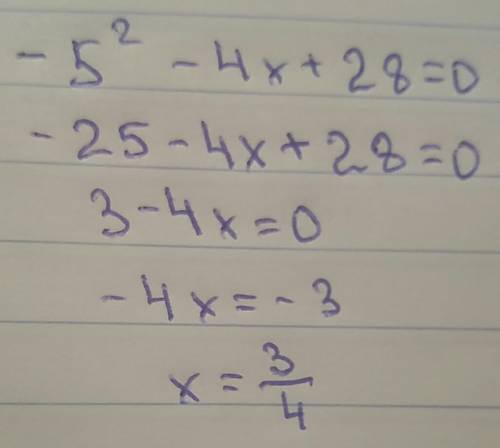 - 5² - 4x + 28 = 0
- 25 - 4x + 28 = 0
3 - 4x = 0
- 4x = - 3
x = 3/4